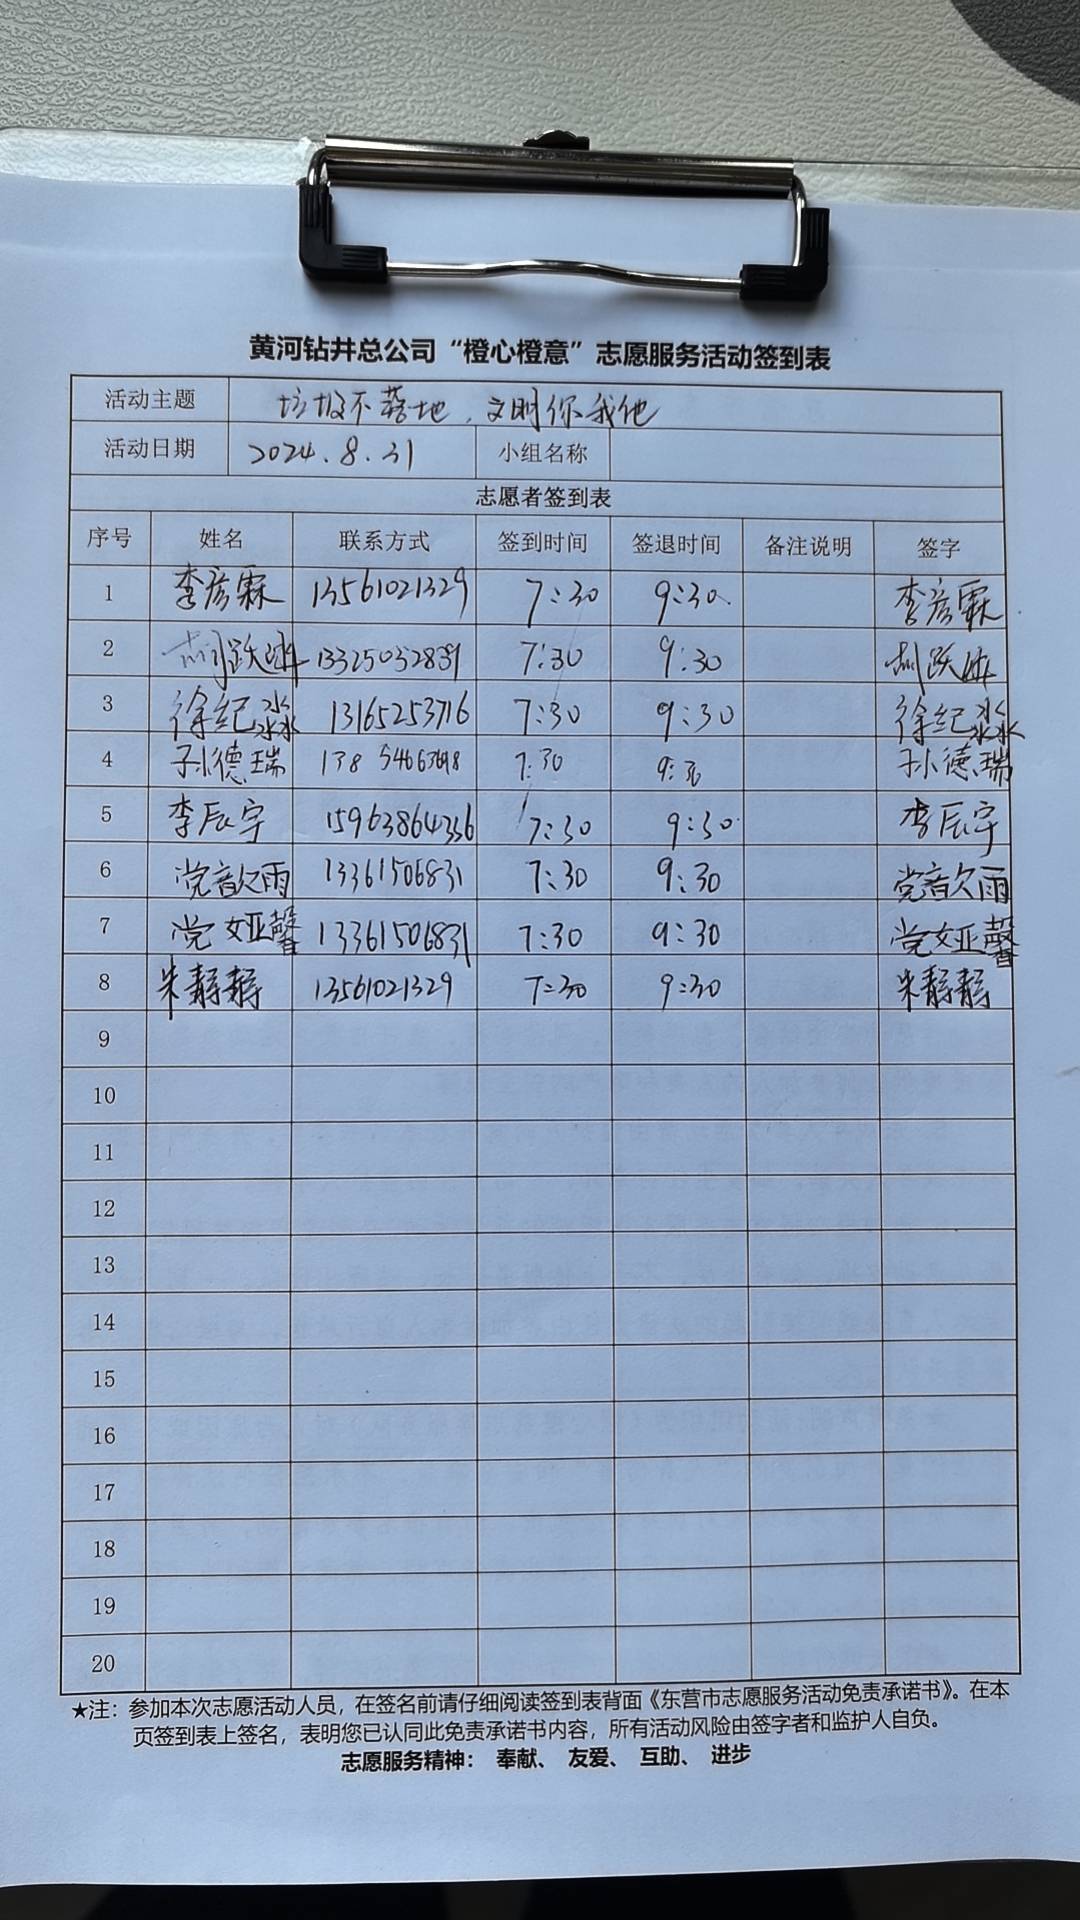 黄河钻井总公司“橙心橙意”志愿服务活动签到表
活动主题 垃圾不落地,文明你我他
活动日期 2024.8.31 小组名称
志愿者签到表
序号 姓名 联系方式 签到时间 签退时间 备注说明 签字
1 李彦霖 13561021329 7:30 9:30 李彦霖
2 跃 13325032839 7:30 9:30 跃
3 徐纪淼 13165253716 7:30 9:30 徐纪淼
4 孙德瑞 7:30 9:30 孙德瑞
5 李辰宇 15963864336 7:30 9:30 李辰宇
6 党歆雨 13361506831 7:30 9:30 党歆雨
7 党娅馨 13361506831 7:30 9:30 党娅馨
8 朱静静 13561021329 7:30 9:30 朱静静
9
10
11
12
13
14
15
16
17
18
19
20
★注：参加本次志愿活动人员，在签名前请仔细阅读签到表背面《东营市志愿服务活动免责承诺书》。在本
页签到表上签名，表明您已认同此免责承诺书内容，所有活动风险由签字者和监护人自负。
志愿服务精神： 奉献、 友爱、 互助、 进步